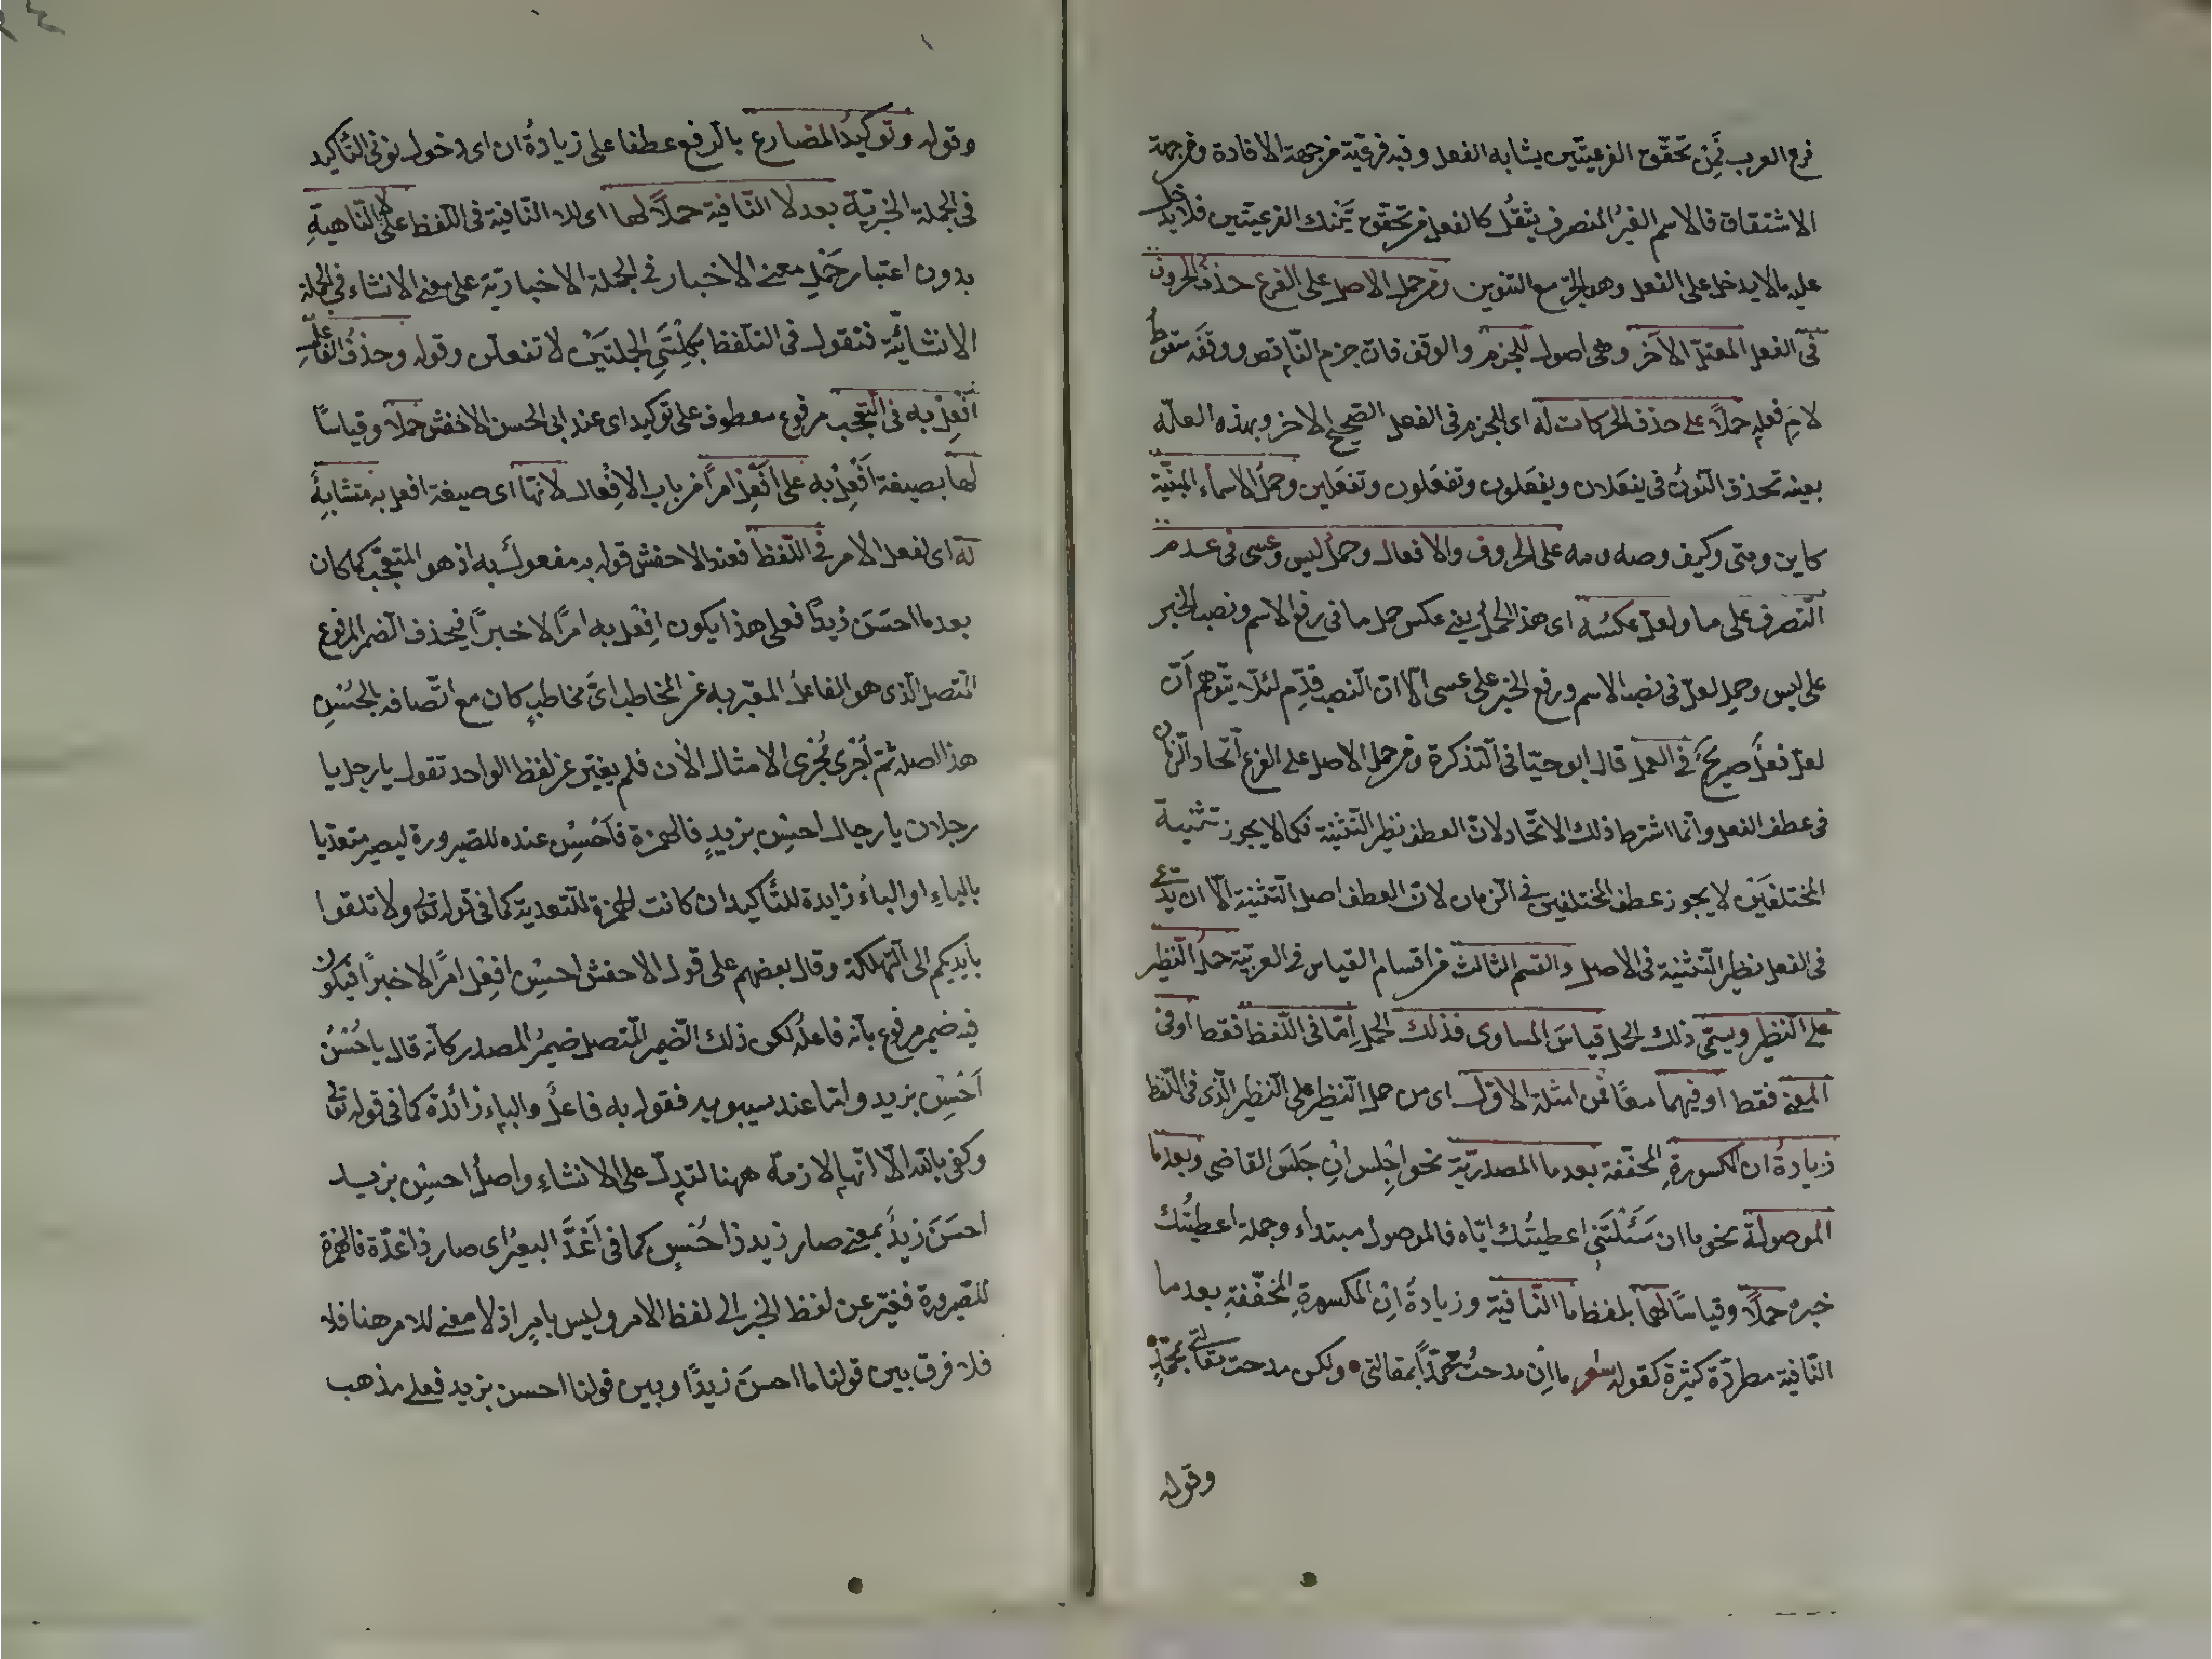 فرع العرب فمن تحقق الفرعيتين يشابه الفعل وفيه فرعية من جهة الافادة ومن جهة
الاشتقاق فالاسم الغير المنصرف يثقل كالفعل من تحقق تينك الفرعيتين فلا يدخل
عليه ما لا يدخل على الفعل وهو الجر مع التنوين ومن حمل الاصل على الفرع حذف الحروف
فى الفعل المعتل الآخر وهى اصول للجزم والوقف فان جزم الناقص ووقفه سقوط
لام فعله حملا على حذف الحركات له اى للجزم فى الفعل الصحيح الاخر وبهذه العلة
بعينه تحذف النون فى يفعلان ويفعلون وتفعلون وتفعلين وحمل الاسماء المبنية
كاين ومتى وكيف وصه ومه على الحروف والافعال وحمل ليس وعسى فى عدم
التصرف على ما ولعل عكسه اى هذا الحمل يعنى عكس حمل ما فى رفع الاسم ونصب الخبر
على ليس وحمل لعل فى نصب الاسم ورفع الخبر على عسى الا ان النصب قدم لئلا يتوهم ان
لعل فعل صريح فى العمل قال ابو حيا فى التذكرة ومن حمل الاصل على الفرع اتحاد الزمان
فى عطف الفعل وانما اشترط ذلك الاتحاد لان العطف نظير التثنية فكما لا يجوز تثنية
المختلفين لا يجوز عطف المختلفين فى الزمان لان العطف اصل التثنية الا ان يدعى
فى الفعل نظير التثنية فى الاصل والقسم الثالث من اقسام القياس فى العربية حمل النظير
على النظير ويسمى ذلك الحمل قياس المساوى فذلك الحمل اما فى اللفظ فقط او فى
المعنى فقط او فيهما معا فمن امثلة الاول اى من حمل النظير على النظير الذى فى اللفظ
زيادة ان المكسورة المخففة بعد ما المصدرية نحو اجلس ان جلس القاضى وبعد ما
الموصولة نحو ما ان سئلتنى اعطيتك اياه فالموصول مبتداء وجملة اعطيتك
خبره حملا وقياسا لهما بلفظ ما النافية وزيادة ان المكسورة المخففة بعد ما
النافية مطردة كثيرة كقوله شعر ما ان مدحت محمدا بمقالتى • ولكن مدحت مقالتى بمحمد •
وقوله
وقوله وتوكيد المضارع بالرفع عطفا على زيادة ان اى دخول نونى التأكيد
فى الجملة الخبرية بعد لا النافية حملا لها اى للا النافية فى اللفظ على لا الناهية
بدون اعتبار حمل معنى الاخبار فى الجملة الاخبارية على معنى الانشاء فى الجملة
الانشائية فتقول فى التلفظ بكلمتى الجملتين لا تفعلن وقوله وحذف الفاعل
افعل به فى التعجب مرفوع معطوف على توكيد اى عند ابى الحسن الاخفش حملا وقياسا
لها بصيغة افعل به على افعل امرا من باب الافعال لانها اى صيغة افعل به متشابه
له اى لفعل الامر فى اللفظ فعند الاخفش قوله به مفعول به اذ هو المتعجب كما كان
بعد ما احسن زيدا فعلى هذا يكون افعل به امرا لا خبرا فيحذف الضمير المرفوع
المتصل الذى هو الفاعل المعبر به عن المخاطب اى مخاطب كان مع اتصافه بالحسن
هذا اصله ثم اجرى مجرى الامثال الآن فلم يغير عن لفظ الواحد تقول يا رجل يا
رجلان يا رجال احسن بزيد فالهمزة فاحسن عنده للصيرورة ليصير متعديا
بالباء او الباء زايدة للتأكيد ان كانت الهمزة للتعدية كما فى قوله تعالى ولا تلقوا
بايديكم الى التهلكة وقال بعضهم على قول الاخفش احسن افعل امرا لا خبرا فيكون
فيه ضمير مرفوع بانه فاعله لكن ذلك الضمير المتصل ضمير المصدر كانه قال يا حسن
احسن بزيد واما عند سيبويه فقوله به فاعل والباء زائدة كما فى قوله تعالى
وكفى بالله الا انها لازمة ههنا لتدل على الانشاء واصل احسن بزيد
احسن زيد بمعنى صار زيد ذا حسن كما فى اغد البعير اى صار ذا غدة فالهمزة
للصيرورة فغير عن لفظ الخبر الى لفظ الامر وليس بامر اذ لا معنى للامر هنا فلا
فلا فرق بين قولنا ما احسن زيدا وبين قولنا احسن بزيد فعلى مذهب